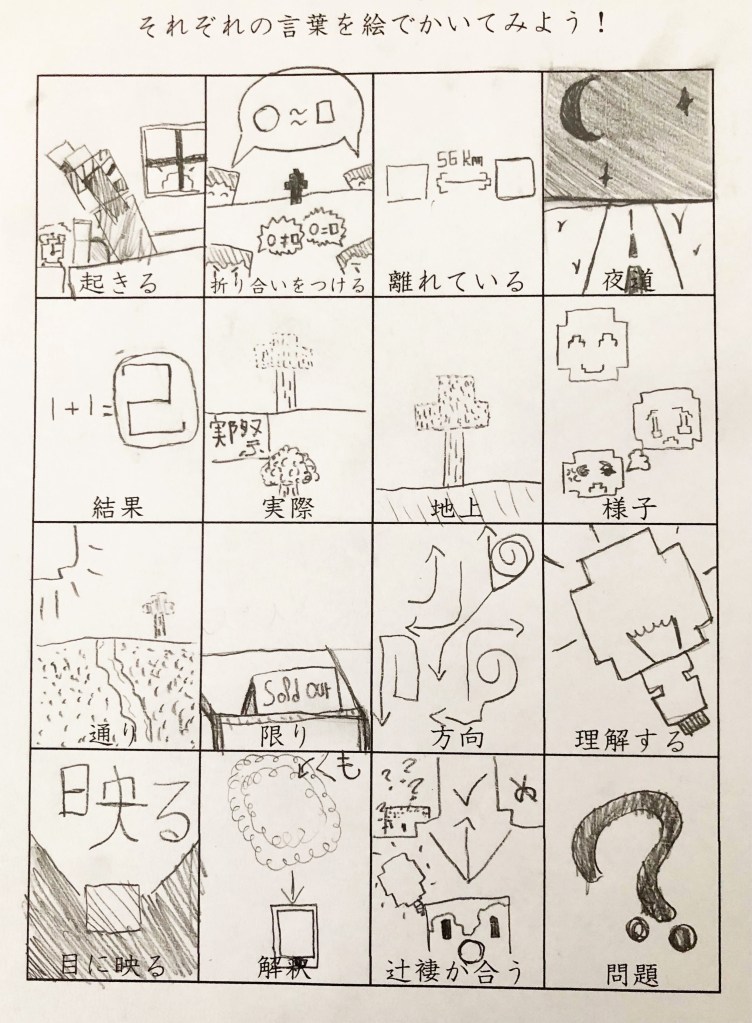 それぞれの言葉を絵でかいてみよう！
○≈□
○≠□
○=□
56 km
起きる
折り合いをつける
離れている
夜道
1+1=2
結果
実際
地上
様子
Sold out
通り
限り
方向
理解する
映る
くも
???
目に映る
解釈
辻褄が合う
?
問題